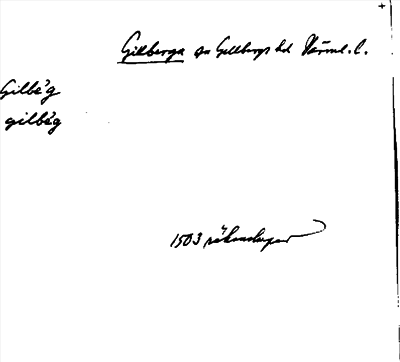 Gillberga sn Gillbergs hd Värml. l.
Gilbe'g
gilbe'g
1503 räkenskaper